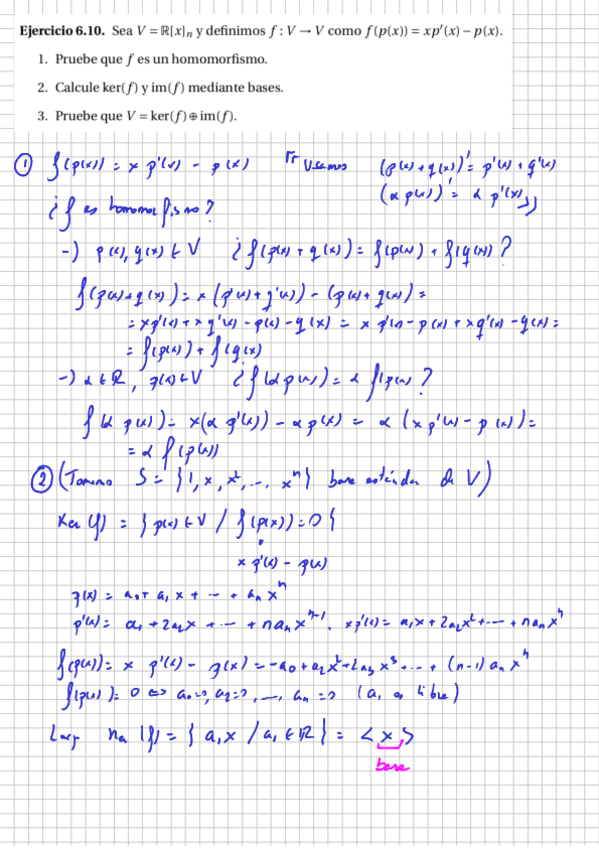 Ejercicio 6.10. Sea V = ℝ[x]ₙ y definimos f : V → V como f(p(x)) = xp′(x) − p(x).
1. Pruebe que f es un homomorfismo.
2. Calcule ker(f) y im(f) mediante bases.
3. Pruebe que V = ker(f) ⊕ im(f).
① f(p(x)) = x p'(x) - p(x) Usamos (p(x) + q(x))' = p'(x) + q'(x)
(α p(x))' = α p'(x)
¿f es homomorfismo?
-) p(x), q(x) ∈ V ¿f(p(x) + q(x)) = f(p(x)) + f(q(x))?
f(p(x) + q(x)) = x(p'(x) + q'(x)) - (p(x) + q(x)) =
= xp'(x) + x q'(x) - p(x) - q(x) = x p'(x) - p(x) + x q'(x) - q(x) =
= f(p(x)) + f(q(x))
-) α ∈ ℝ, p(x) ∈ V ¿f(α p(x)) = α f(p(x))?
f(α p(x)) = x(α p'(x)) - α p(x) = α (x p'(x) - p(x)) =
= α f(p(x))
② (Tomamos S = {1, x, x², ..., xⁿ} base estándar de V)
Ker(f) = {p(x) ∈ V / f(p(x)) = 0}
x p'(x) - p(x)
p(x) = a₀ + a₁ x + ... + aₙ xⁿ
p'(x) = a₁ + 2a₂x + ... + naₙ xⁿ⁻¹. xp'(x) = a₁x + 2a₂x² + ... + naₙ xⁿ
f(p(x)) = x p'(x) - p(x) = -a₀ + a₂x² + 2a₃ x³ + ... + (n-1) aₙ xⁿ
f(p(x)) = 0 ⇔ a₀ = 0, a₂ = 0, ..., aₙ = 0 (a₁ es libre)
Luego (f) = {a₁x / a₁ ∈ ℝ} = <x>
base